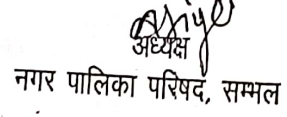 अध्यक्ष
नगर पालिका परिषद, सम्भल